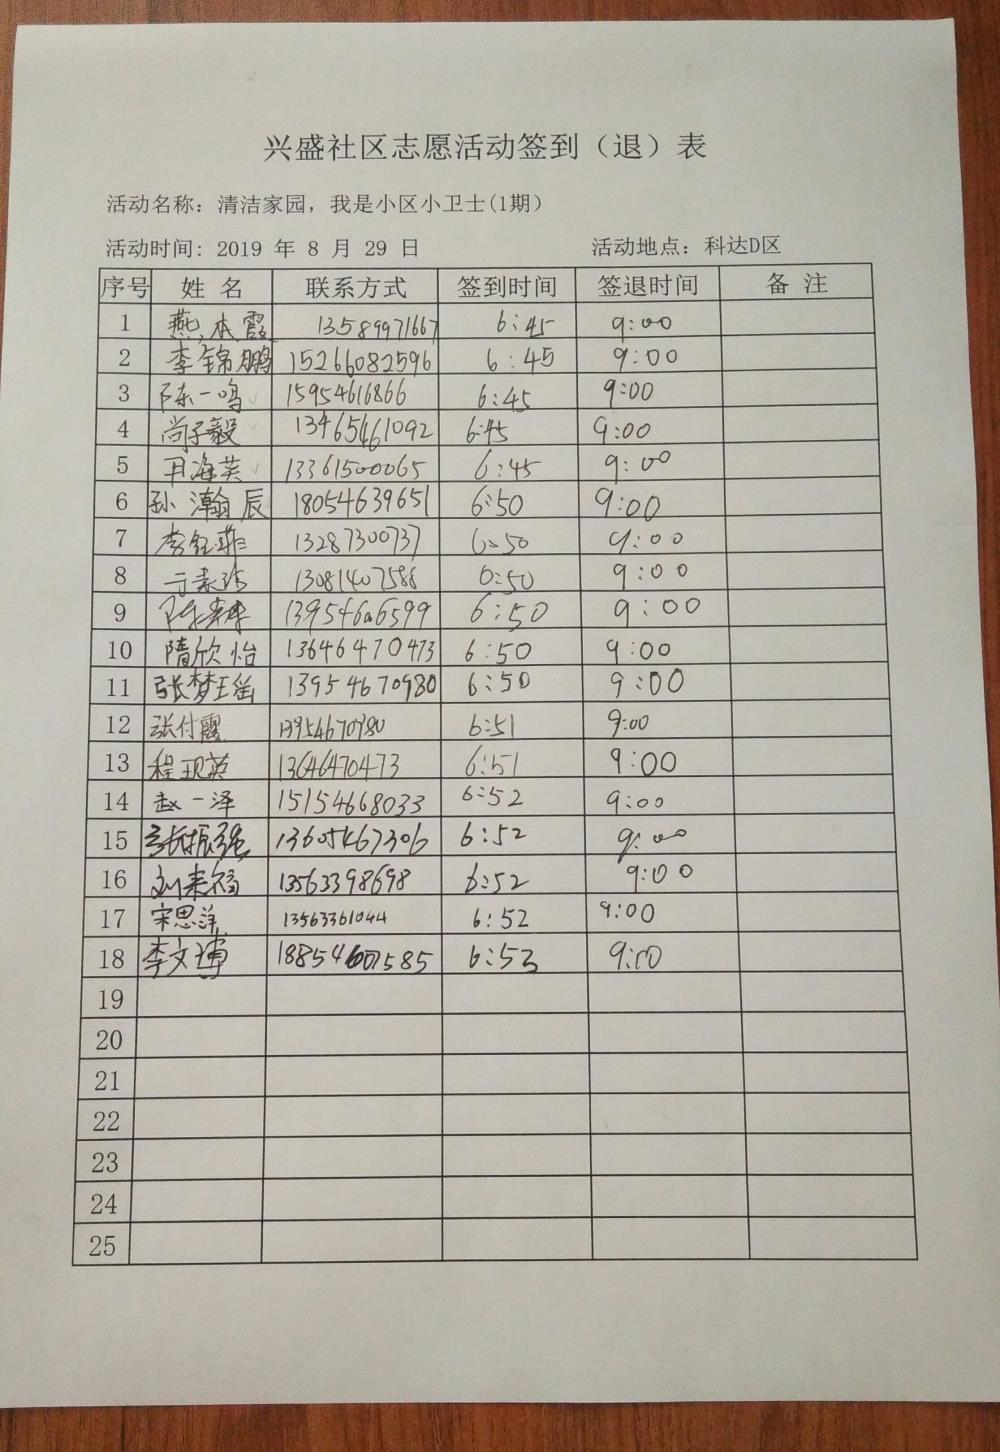 兴盛社区志愿活动签到（退）表
活动名称：清洁家园，我是小区小卫士(1期)
活动时间: 2019 年 8 月 29 日 活动地点：科达D区
序号 姓 名 联系方式 签到时间 签退时间 备 注
1 燕本霞 13589971667 6:45 9:00
2 李锦鹏 15266082596 6:45 9:00
3 陈一鸣 15954616866 6:45 9:00
4 尚子毅 13465461092 6:45 9:00
5 尹海英 13361500065 6:45 9:00
6 孙瀚辰 18054639651 6:50 9:00
7 13287300737 6:50 9:00
8 13081407586 6:50 9:00
9 6:50 9:00
10 隋欣怡 13646470473 6:50 9:00
11 张梦瑶 13954670980 6:50 9:00
12 张付霞 13954670980 6:51 9:00
13 程现英 13646470473 6:51 9:00
14 赵一泽 15154668033 6:52 9:00
15 张振强 13605467306 6:52 9:00
16 刘来福 13563398698 6:52 9:00
17 宋思洋 13563361044 6:52 9:00
18 李文博 18854607585 6:53 9:00
19
20
21
22
23
24
25